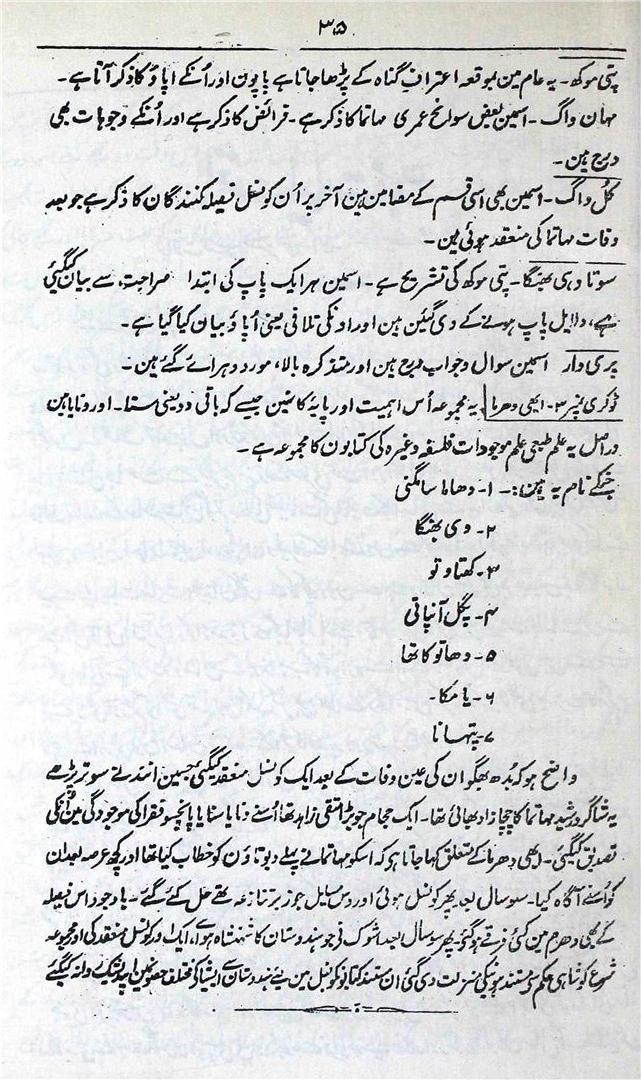 ۳۵
پتی موکھ ۔ یہ عام مین بموقعہ اعتراف گناہ کے پڑھا جاتا ہے پاپون اور اُنکے اپاؤ کا ذکر آتا ہے ۔
مہان واگ ۔ اسمین بعض سوانح عمری مہاتما کا ذکر ہے ۔ فرائض کا ذکر ہے اور اُنکے وجوہات بھی
درج ہین ۔
کُل واگ ۔ اسمین بھی اسی قسم کے مضامین ہین آخر پر اُن کونسل فیصلہ کنندگان کا ذکر ہے جو بعد
وفات مہاتما کی منعقد ہوئی ہین ۔
سوتا وبھی بھنگا ۔ پتی موکھ کی تشریح ہے ۔ اسمین ہر ایک پاپ کی ابتدا صراحت سے بیان کیگئی
ہے، دلایل پاپ ہونے کے دی گئین ہین اور اونکی تلافی یعنی اُپاؤ بیان کیا گیا ہے ۔
پری وار اسمین سوال وجواب درج ہین اور متذکرہ بالا، مورد دہرائے گئے ہین ۔
ٹوکری نمبر ۳ ۔ ابھی دھرما یہ مجموعہ اُس اہمیت اور پایہ کا نہین جیسے کہ باقی دو یعنی ستا ۔ اور ونایا ہین
دراصل یہ علم طبعی علم موجودات فلسفہ وغیرہ کی کتابون کا مجموعہ ہے ۔
جنکے نام یہ ہین :۔ ۱۔ دھاما سانگنی
۲۔ وی بھنگا
۳۔ کھتا وتو
۴۔ پگل آنپاتی
۵۔ دھاتو کاتھا
۶۔ یامکا ۔
۷۔ پتہانا
واضح ہو کہ بُدھ بھگوان کی عین وفات کے بعد ایک کونسل منعقد کیگئی جسمین انند نے سوتر پڑھے
یہ شاگرد رشید مہاتما کا چچا زاد بھائی تھا ۔ ایک حجام جو بڑا متقی زاہد تھا اُسنے ونایا سنایا پانچسو فقرا کی موجودگی مین اُنکی
تصدیق کیگئی ۔ ابھی دھرما کے متعلق کہا جاتا ہی کہ اسکو مہاتما نے پہلے دیوتاؤن کو خطاب کیا تھا اور کچھ عرصہ بعد ان
کو اُسنے آگاہ کیا ۔ سو سال بعد پھر کونسل ہوئی اور دس مسایل جو زیر تنازعہ تھے حل کئے گئے ۔ باوجود اس فیصلہ
کے بھی دھرم مین کئی فرقے ہوگئے پھر سو سال بعد اشوک نے جو ہندوستان کا شہنشاہ ہوا، ایک اور کونسل منعقد کی اور مجموعہ
شرع کو شاہی حکم سے مستند ہونیکی منزلت دی گئی ان مستند کتابو کونسل مین سے ہندوستان ایشیا کی مختلف حصون مین روانہ کیگئے